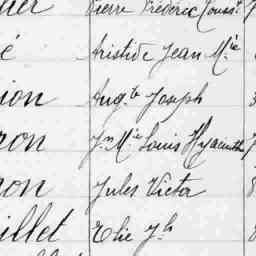 ier Pierre Frédéric Touss.t
é Aristide Jean M.ie
ion Aug.te Joseph
ron J.n M.ie Louis Hyacinthe
non Jules Victor
illet Elie J.h